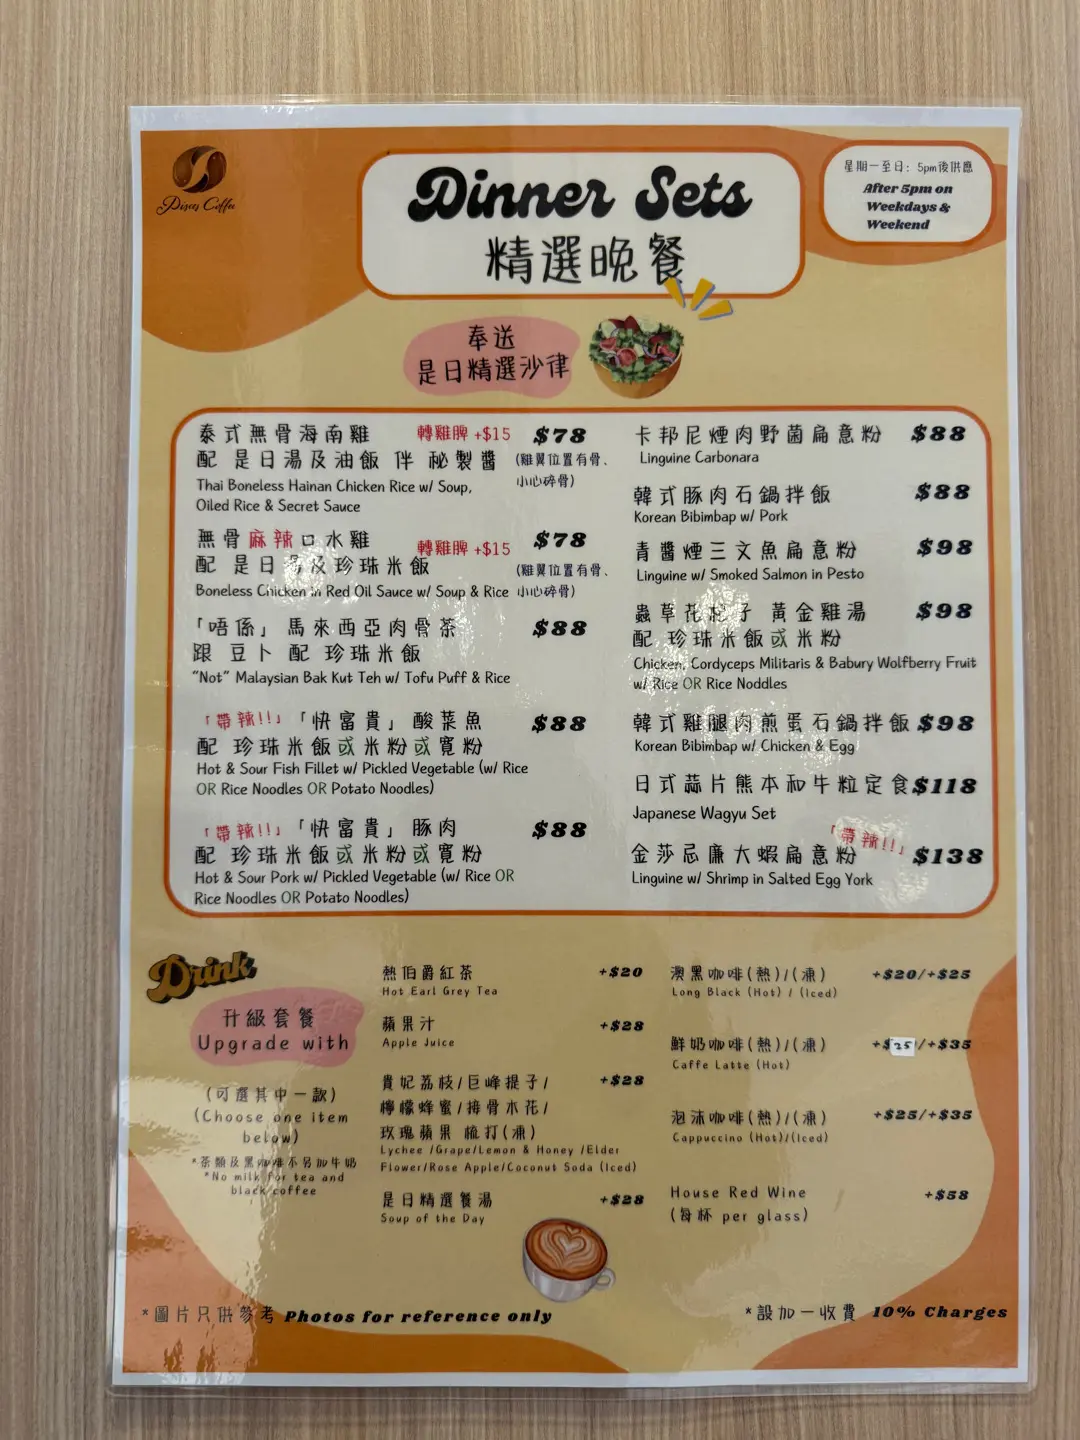 Pisces Coffee
Dinner Sets
精選晚餐
星期一至日: 5pm後供應
After 5pm on
Weekdays &
Weekend
奉送
是日精選沙律
泰式無骨海南雞 轉雞脾 +$15 $78
配 是日湯及油飯 伴 秘製醬 (雞翼位置有骨、
小心碎骨)
Thai Boneless Hainan Chicken Rice w/ Soup,
Oiled Rice & Secret Sauce
無骨麻辣口水雞 轉雞脾 +$15 $78
配 是日湯及珍珠米飯 (雞翼位置有骨、
Boneless Chicken in Red Oil Sauce w/ Soup & Rice 小心碎骨)
「唔係」馬來西亞肉骨茶 $88
跟 豆卜 配 珍珠米飯
"Not" Malaysian Bak Kut Teh w/ Tofu Puff & Rice
「帶辣!!」「快富貴」酸菜魚 $88
配 珍珠米飯或米粉或寬粉
Hot & Sour Fish Fillet w/ Pickled Vegetable (w/ Rice
OR Rice Noodles OR Potato Noodles)
「帶辣!!」「快富貴」豚肉 $88
配 珍珠米飯或米粉或寬粉
Hot & Sour Pork w/ Pickled Vegetable (w/ Rice OR
Rice Noodles OR Potato Noodles)
卡邦尼煙肉野菌扁意粉 $88
Linguine Carbonara
韓式豚肉石鍋拌飯 $88
Korean Bibimbap w/ Pork
青醬煙三文魚扁意粉 $98
Linguine w/ Smoked Salmon in Pesto
蟲草花杞子 黃金雞湯 $98
配 珍珠米飯或米粉
Chicken, Cordyceps Militaris & Babury Wolfberry Fruit
w/ Rice OR Rice Noddles
韓式雞腿肉煎蛋石鍋拌飯 $98
Korean Bibimbap w/ Chicken & Egg
日式蒜片熊本和牛粒定食 $118
Japanese Wagyu Set
「帶辣!!」
金莎忌廉大蝦扁意粉 $138
Linguine w/ Shrimp in Salted Egg York
Drink
升級套餐
Upgrade with
(可選其中一款)
(Choose one item
below)
*茶類及黑咖啡不另加牛奶
*No milk for tea and
black coffee
熱伯爵紅茶 +$20
Hot Earl Grey Tea
蘋果汁 +$28
Apple Juice
貴妃荔枝/巨峰提子/ +$28
檸檬蜂蜜/接骨木花/
玫瑰蘋果 梳打(凍)
Lychee /Grape/Lemon & Honey /Elder
Flower/Rose Apple/Coconut Soda (Iced)
是日精選餐湯 +$28
Soup of the Day
澳黑咖啡(熱)/(凍) +$20/+$25
Long Black (Hot) / (Iced)
鮮奶咖啡(熱)/(凍) +$25/+$35
Caffe Latte (Hot)
泡沫咖啡(熱)/(凍) +$25/+$35
Cappuccino (Hot)/(Iced)
House Red Wine +$58
(每杯 per glass)
*圖片只供參考 Photos for reference only
*設加一收費 10% Charges